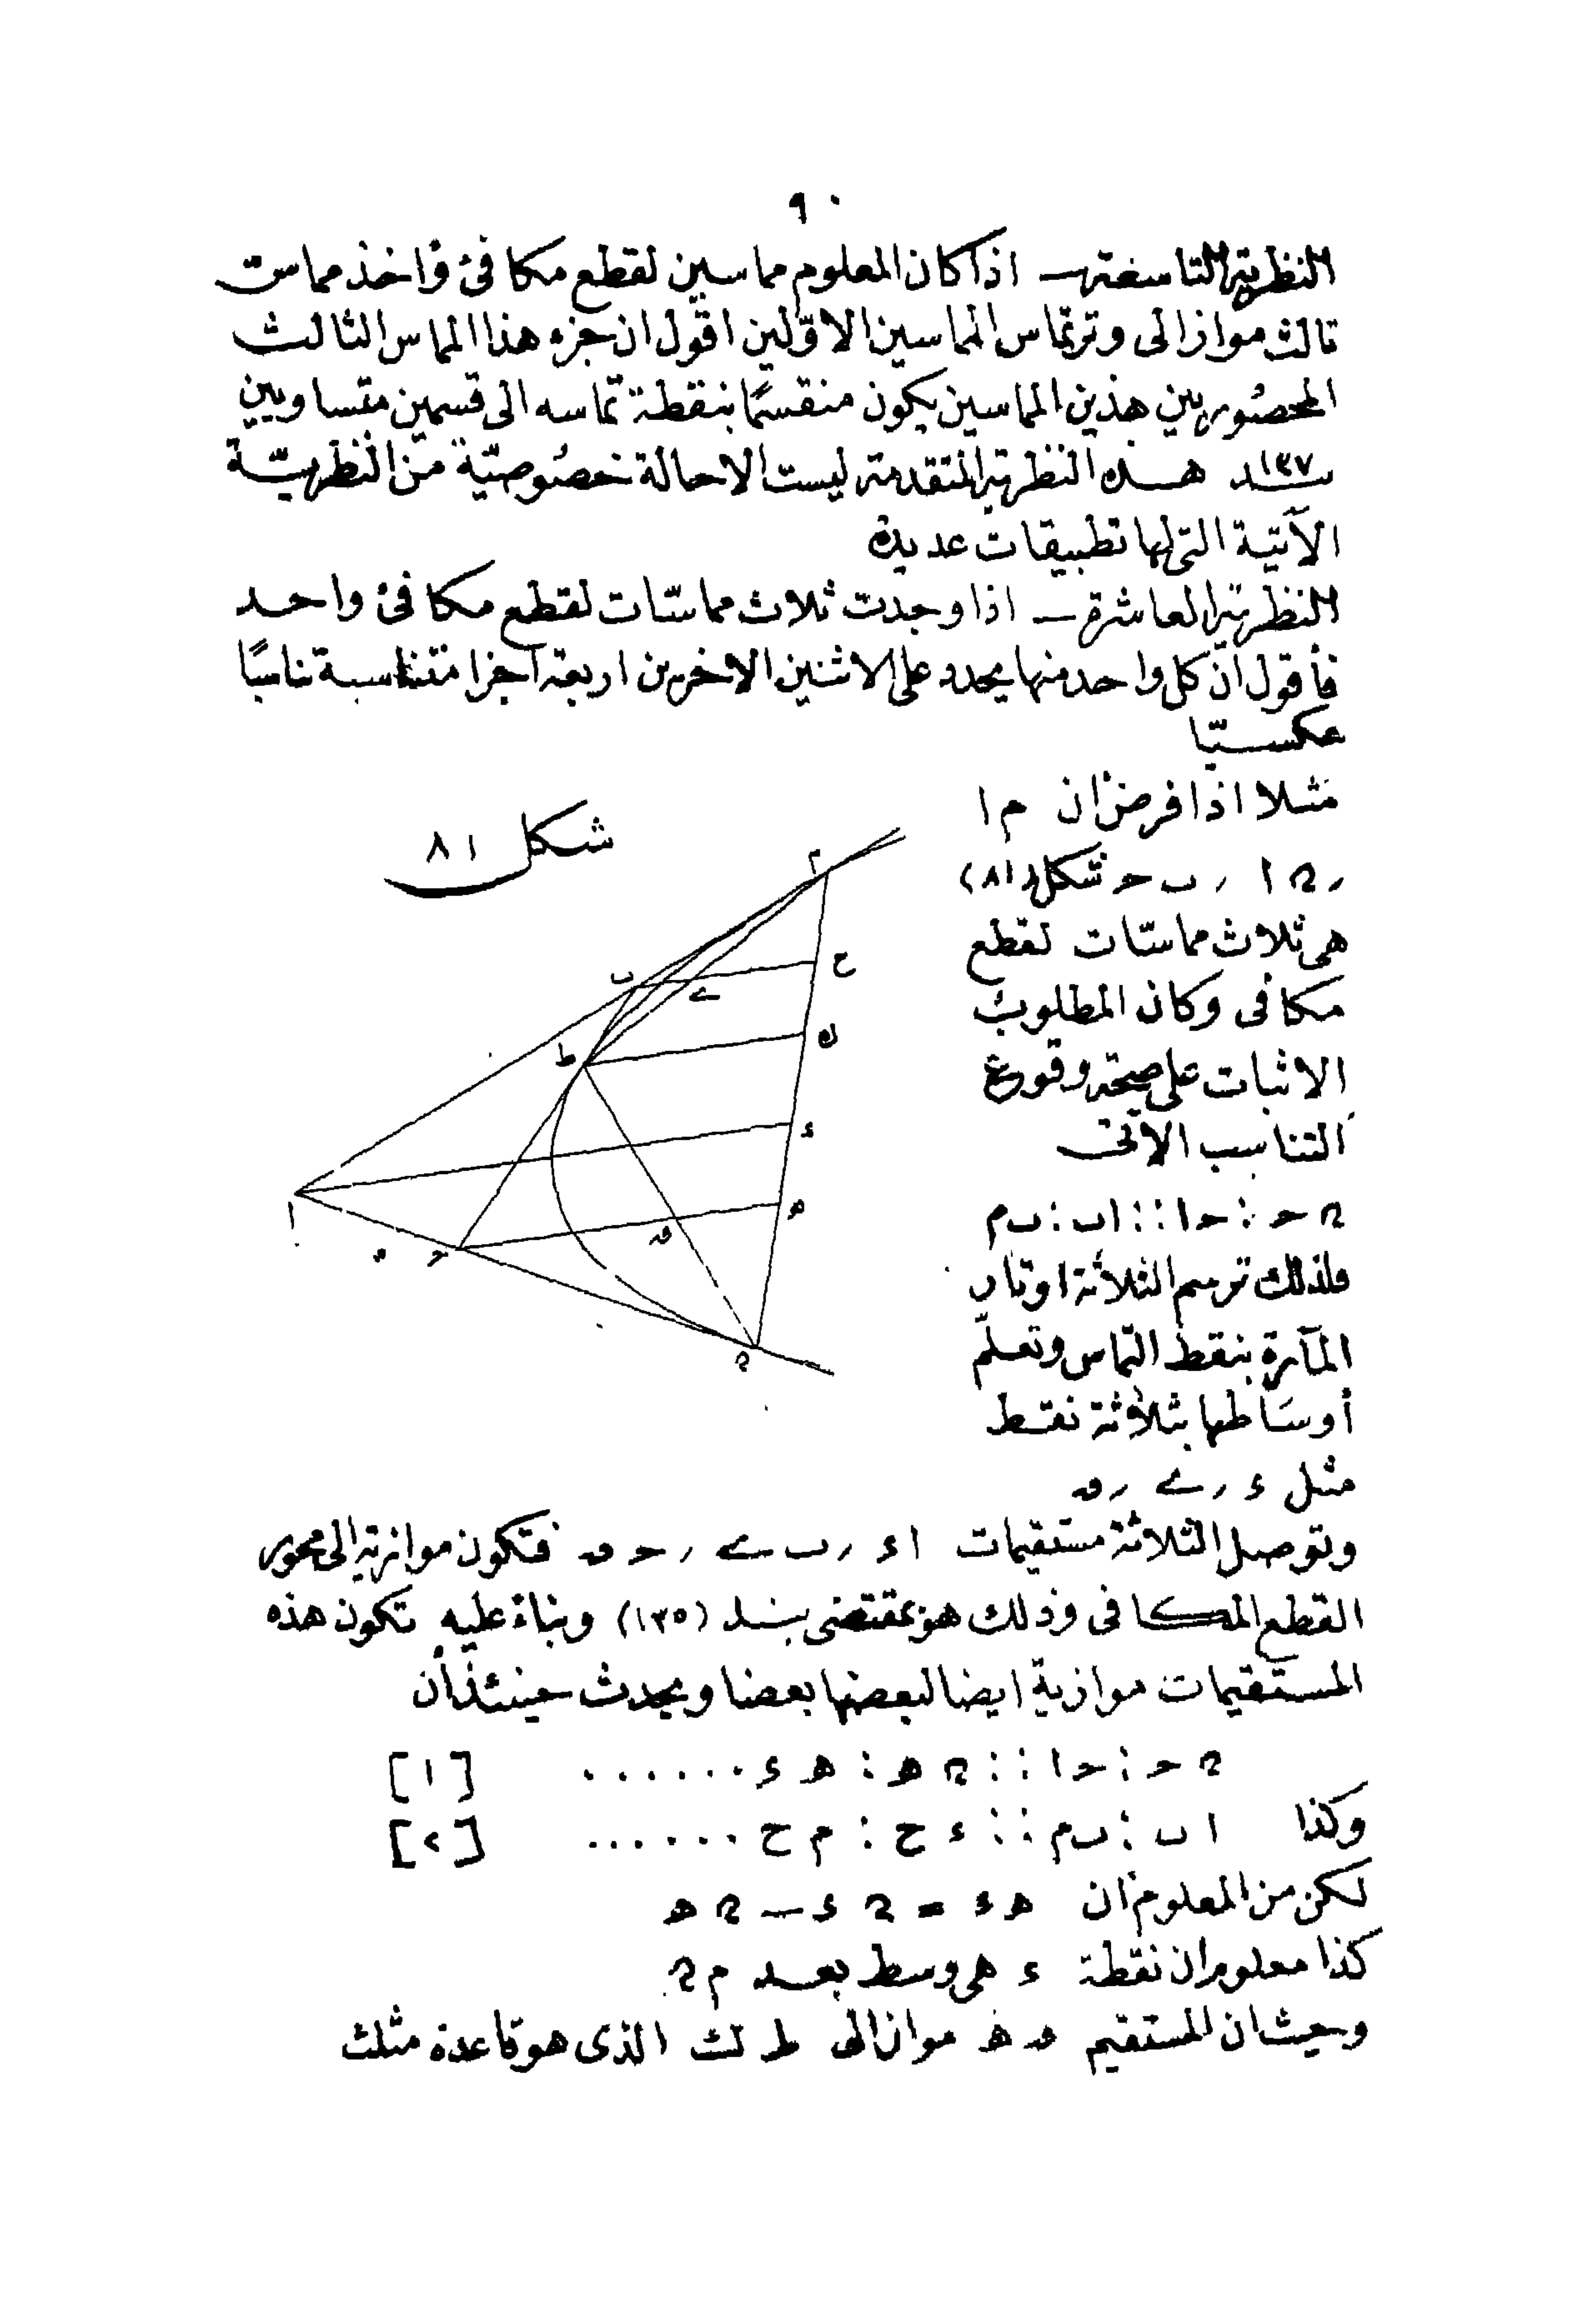 ٩٠
النظرية التاسعة — اذا كان المعلوم مماسين لقطع مكافئ وٱخذ مماس
ثالث مواز الى وتر تماس المماسين الاوّلين اقول ان جزء هذا المماس الثالث
المحصور بين هذين المماسين يكون منقسمًا بنقطة تماسه الى قسمين متساويين
١٣٧ بند هذه النظرية المتقدمة ليست الا حالة خصوصيّة من النظريّة
الآتية التى لها تطبيقات عديدة
النظرية العاشرة — اذا وجدت ثلاث مماسّات لقطع مكافئ واحد
فأقول ان كل واحد منها يحدد على الاثنين الاخرين اربعة اجزا متناسبة تناسبًا
عكسيّا
مثلا اذا فرض ان م ا
ر ن ا ر ب ح شكل (٨١)
هى ثلاث مماسّات لقطع
مكافى وكان المطلوب
الاثبات على صحة وقوع
التناسب الآتى
ن ح : ح ا :: ا ب : ب م
فلذلك ترسم الثلاثة اوتار
المآرة بنقط التماس وتعلّم
أوساطها بثلاثة نقط
مثل ء ر ے ر ق
شكل ٨١
م
ح
ب
ے
ط
ك
ء
ا
ه
ق
ح
ن
وتوصل الثلاثة مستقيمات ا ء ر ب ے ر ح ق فتكون موازية الى محور
القطع المكافى وذلك هو بمقتضى بند (١٣٥) وبناءً عليه تكون هذه
المستقيمات موازية ايضا لبعضها بعضا ويحدث حينئذ أن
ن ح : ح ا :: ن ه : ه ء ...... [١]
وكذا ا ب : ب م :: ء ح : م ح ...... [٢]
لكن من المعلوم ان ه ء = ن ء — ن ه
كذا معلوم ان نقطة ء هى وسط بعد م ن
وحيث ان المستقيم ق ه مواز الى ط ك الذى هو قاعدة مثلث